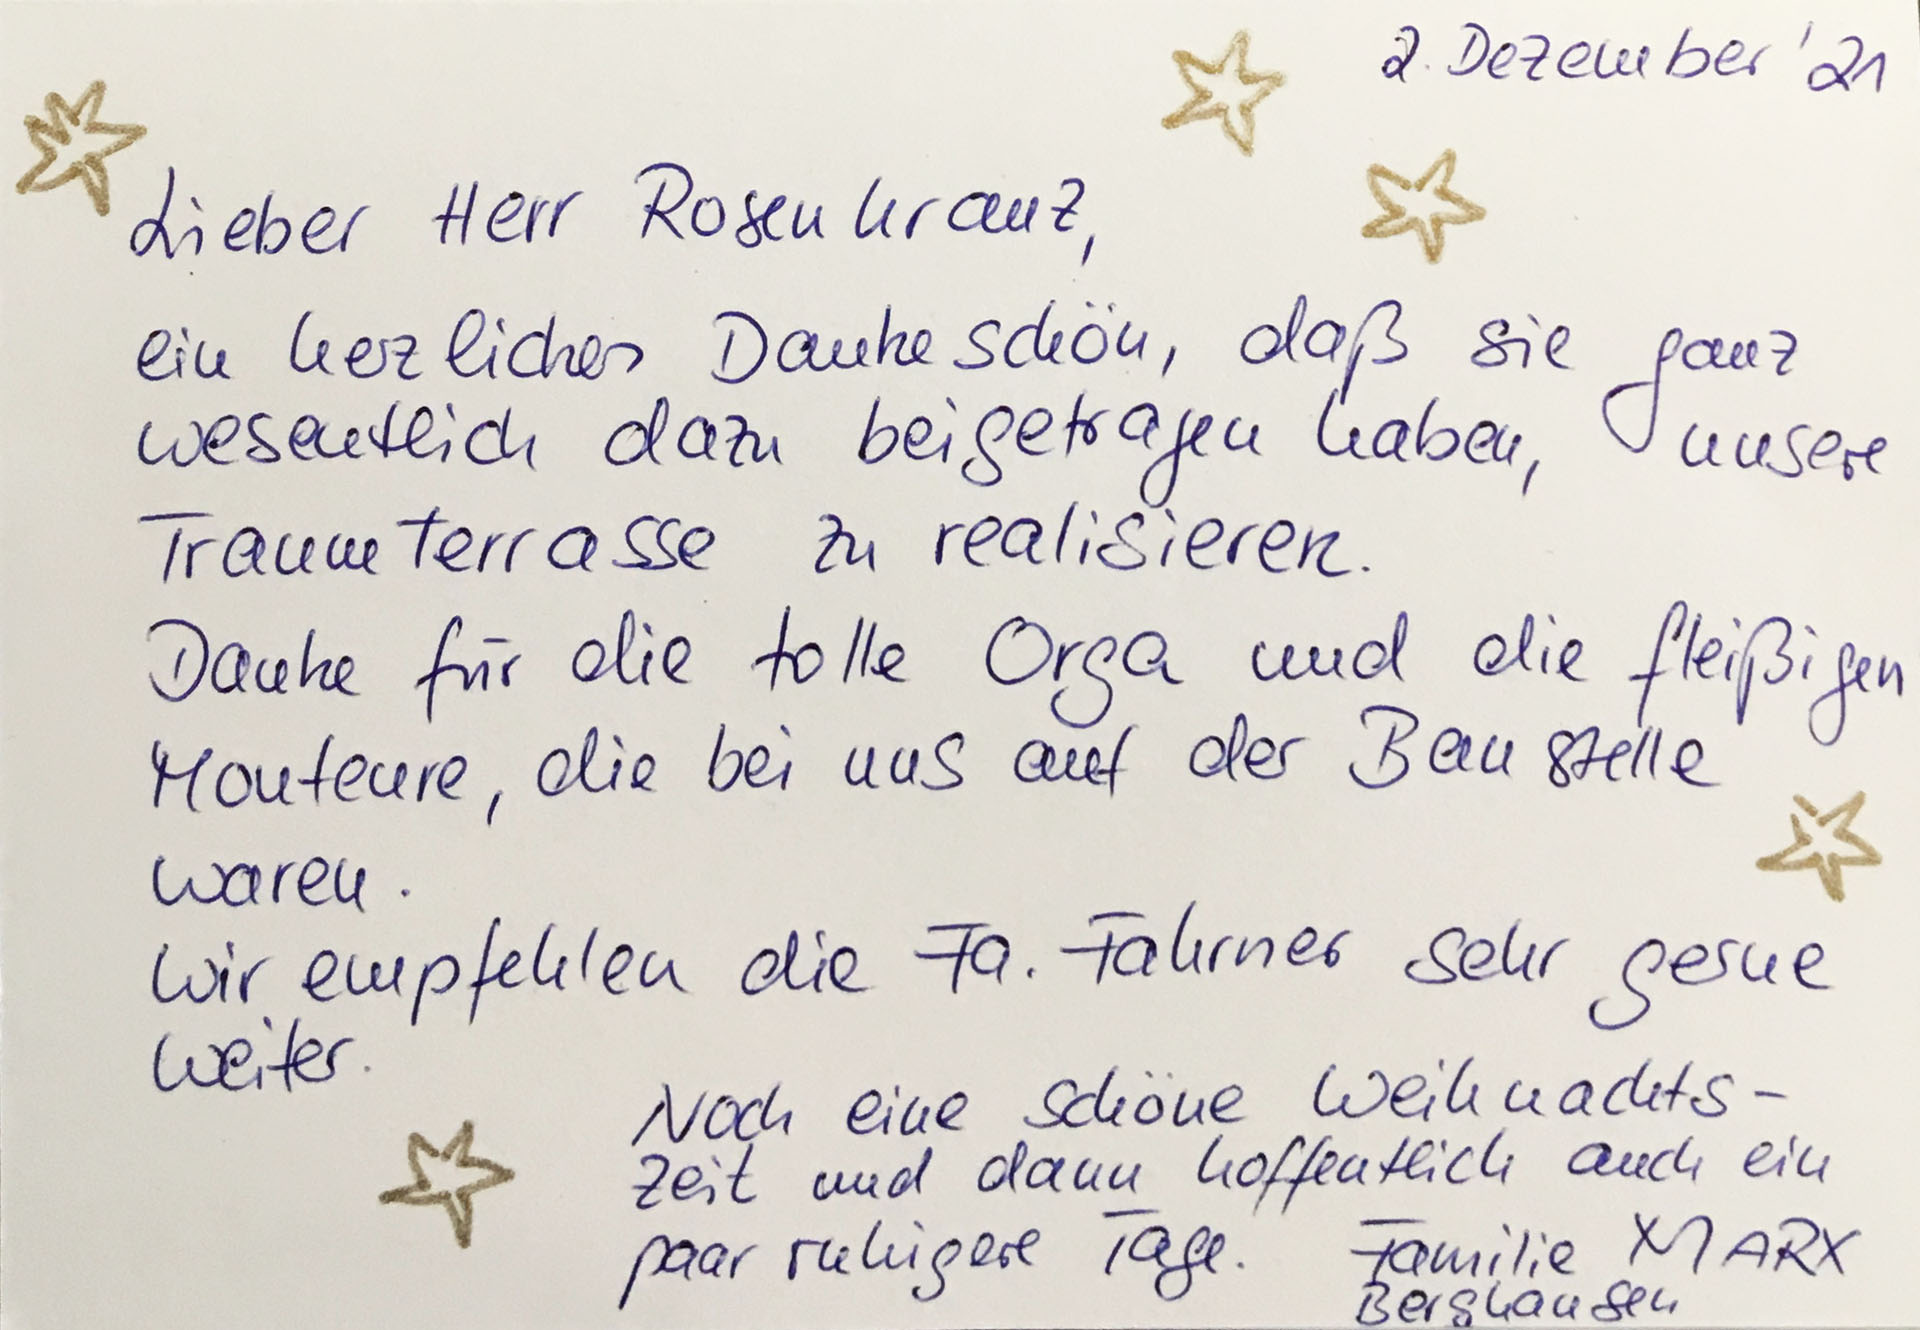 2. Dezember '21
Lieber Herr Rosenkranz,
ein herzliches Dankeschön, daß sie ganz
wesentlich dazu beigetragen haben, unsere
Traumterrasse zu realisieren.
Danke für die tolle Orga und die fleißigen
Monteure, die bei uns auf der Baustelle
waren.
Wir empfehlen die Fa. Fahrner sehr gerne
weiter.
Noch eine schöne Weihnachts-
zeit und dann hoffentlich auch ein
paar ruhigere Tage. Familie MARX
Berghausen